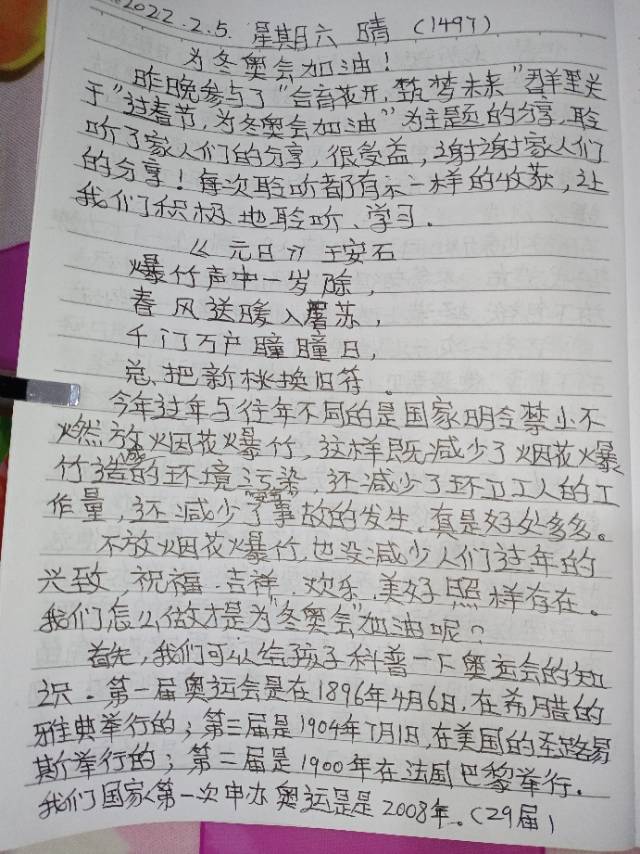 2022.2.5. 星期六 晴 (1497)
为冬奥会加油!
昨晚参与了“合育花开,筑梦未来”群里关
于“过春节,为冬奥会加油”为主题的分享,聆
听了家人们的分享,很受益,谢谢家人们
的分享!每次聆听都有不一样的收获,让
我们积极地聆听、学习.
《元日》 王安石
爆竹声中一岁除,
春风送暖入屠苏,
千门万户瞳瞳日,
总把新桃换旧符.
今年过年与往年不同的是国家明令禁止不
燃放烟花爆竹,这样既减少了烟花爆
竹造的环境污染,还减少了环卫工人的工
作量,还减少了事故的发生,真是好处多多。
不放烟花爆竹,也没减少人们过年的
兴致,祝福.吉祥.欢乐.美好照样存在。
我们怎么做才是为“冬奥会”加油呢?
首先,我们可以给孩子科普一下奥运会的知
识.第一届奥运会是在1896年4月6日,在希腊的
雅典举行的;第三届是1904年7月1日,在美国的圣路易
斯举行的;第二届是1900年在法国巴黎举行.
我们国家第一次申办奥运是是2008年。(29届)